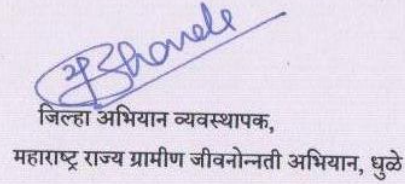 जिल्हा अभियान व्यवस्थापक,
महाराष्ट्र राज्य ग्रामीण जीवनोन्नती अभियान, धुळे